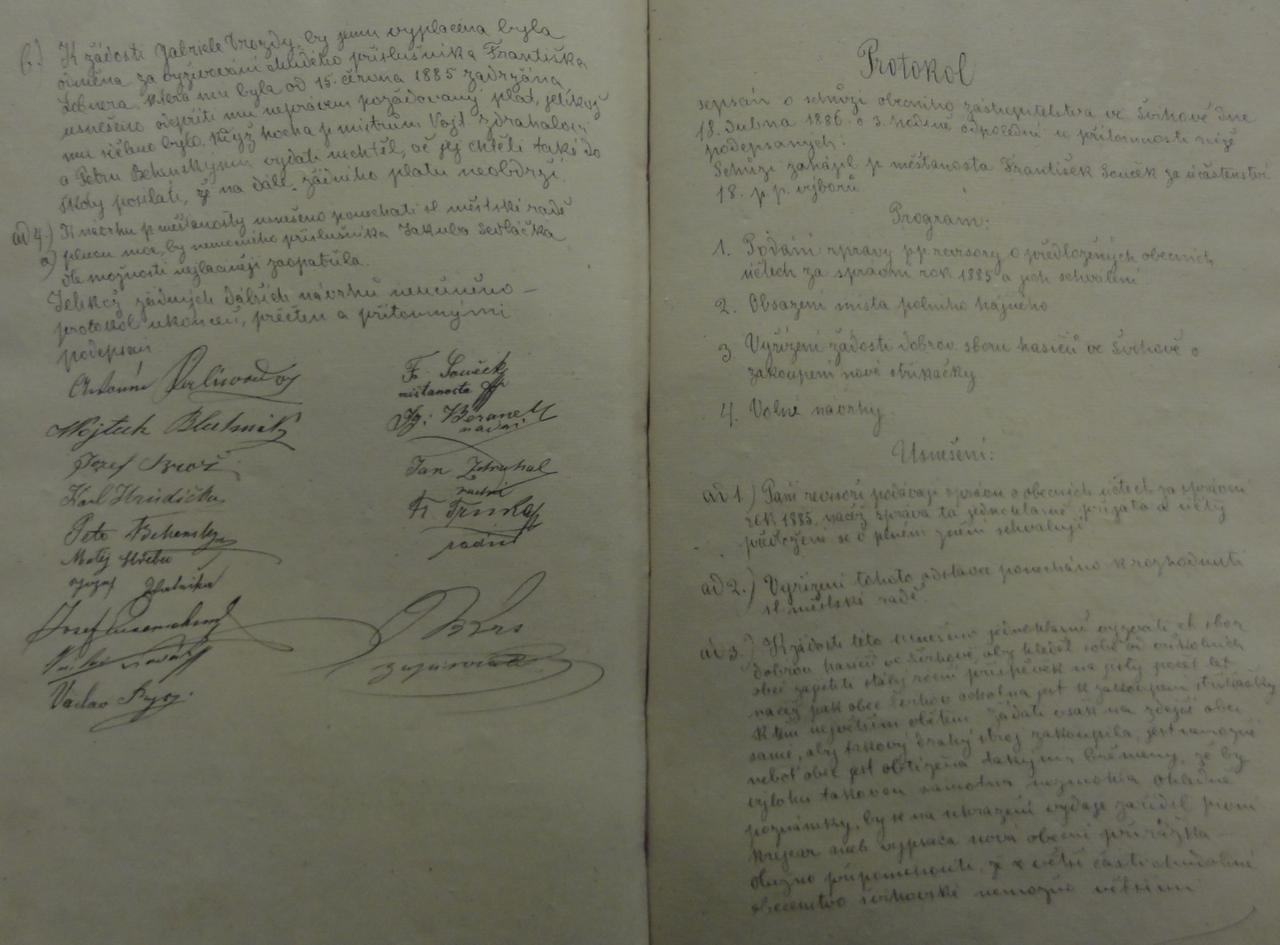 b.) K žádosti Gabriele Drozdy, by jemu vyplacena byla
odměna za vyživování chudého příslušníka Františka
Lebnera, která mu byla od 15. června 1885 zadržána
usnešeno odepříti mu neprávem požádovaný plat, jelikož
mu sděleno bylo, když hocha p. mistrům Vojt. Zdrahalovi
a Petru Behenskýmu vydati nechtěl, ač jej chtěli také do
školy posílati, že na dále žádného platu neobdrží.
ad 4.) K návrhu p. měšťanosty usnešeno ponechati sl. městské radě
a) plnou moc, by nemocného příslušníka Jakuba Sedláčka
dle možnosti nejlaciněji zaopatřila.
Jelikož žádných dalších návrhů neučiněno –
protokol ukončen, přečten a přítomnými
podepsán
Antonín
Wojtěch Blatník
Jozef Brož
Karl Hrudička
Petr Behensky
Matěj
Jozef Zlatníka
Josef
Václav
Fr. Souček
měšťanosta
Ig: Beranek
radní
Jan Zdrahal
radní
Fr. Trnka
radní
zapisovatel
Protokol
sepsán o schůzi obecního zastupitelstva ve Švihově dne
18. dubna 1886 o 3. hodině odpolední u přítomnosti níže
podepsaných.
Schůzi zahájil p. měšťanosta František Souček za účastenství
18. p.p. výborů
Program:
1. Podání zprávy pp. revisorů o předložených obecních
účtech za správní rok 1885 a jich schválení
2. Obsazení místa polního hajného
3 Vyřízení žádosti dobrov. sboru hasičů ve Švihově o
zakoupení nové stříkačky
4. Volné návrhy.
Usnešení:
ad 1.) Páni revisoři podávají zprávu o obecních účtech za správní
rok 1885, načež zpráva ta jednohlasně přijata a účty
předložené se v plném znění schvalují
ad 2.) Vyřízení tohoto odstavce ponecháno k rozhodnutí
sl. městské radě
ad 3.) K žádosti této usnešeno jednohlasně vyzvati ct. sbor
dobrov. hasičů ve Švihově, aby hleděl sobě od okolních
obcí zajistiti stálý roční příspěvek na jistý počet let
načež pak obec Švihov ochotna jest k zakoupení stříkačky
k těm největším obětem. Žádati však na zdejší obci
samé, aby takový drahý stroj zakoupila, jest nemožné
neboť obec jest obtížena takými břemeny, že by
výlohu takovou samotna nezmohla ohledně
poznámky, by se na uhražení výdaje zařídil pivní
krejcar aneb vypsala nová obecní přirážka –
dlužno připomenouti, že z větší části chudobné
obecenstvo švihovské nemožno většími